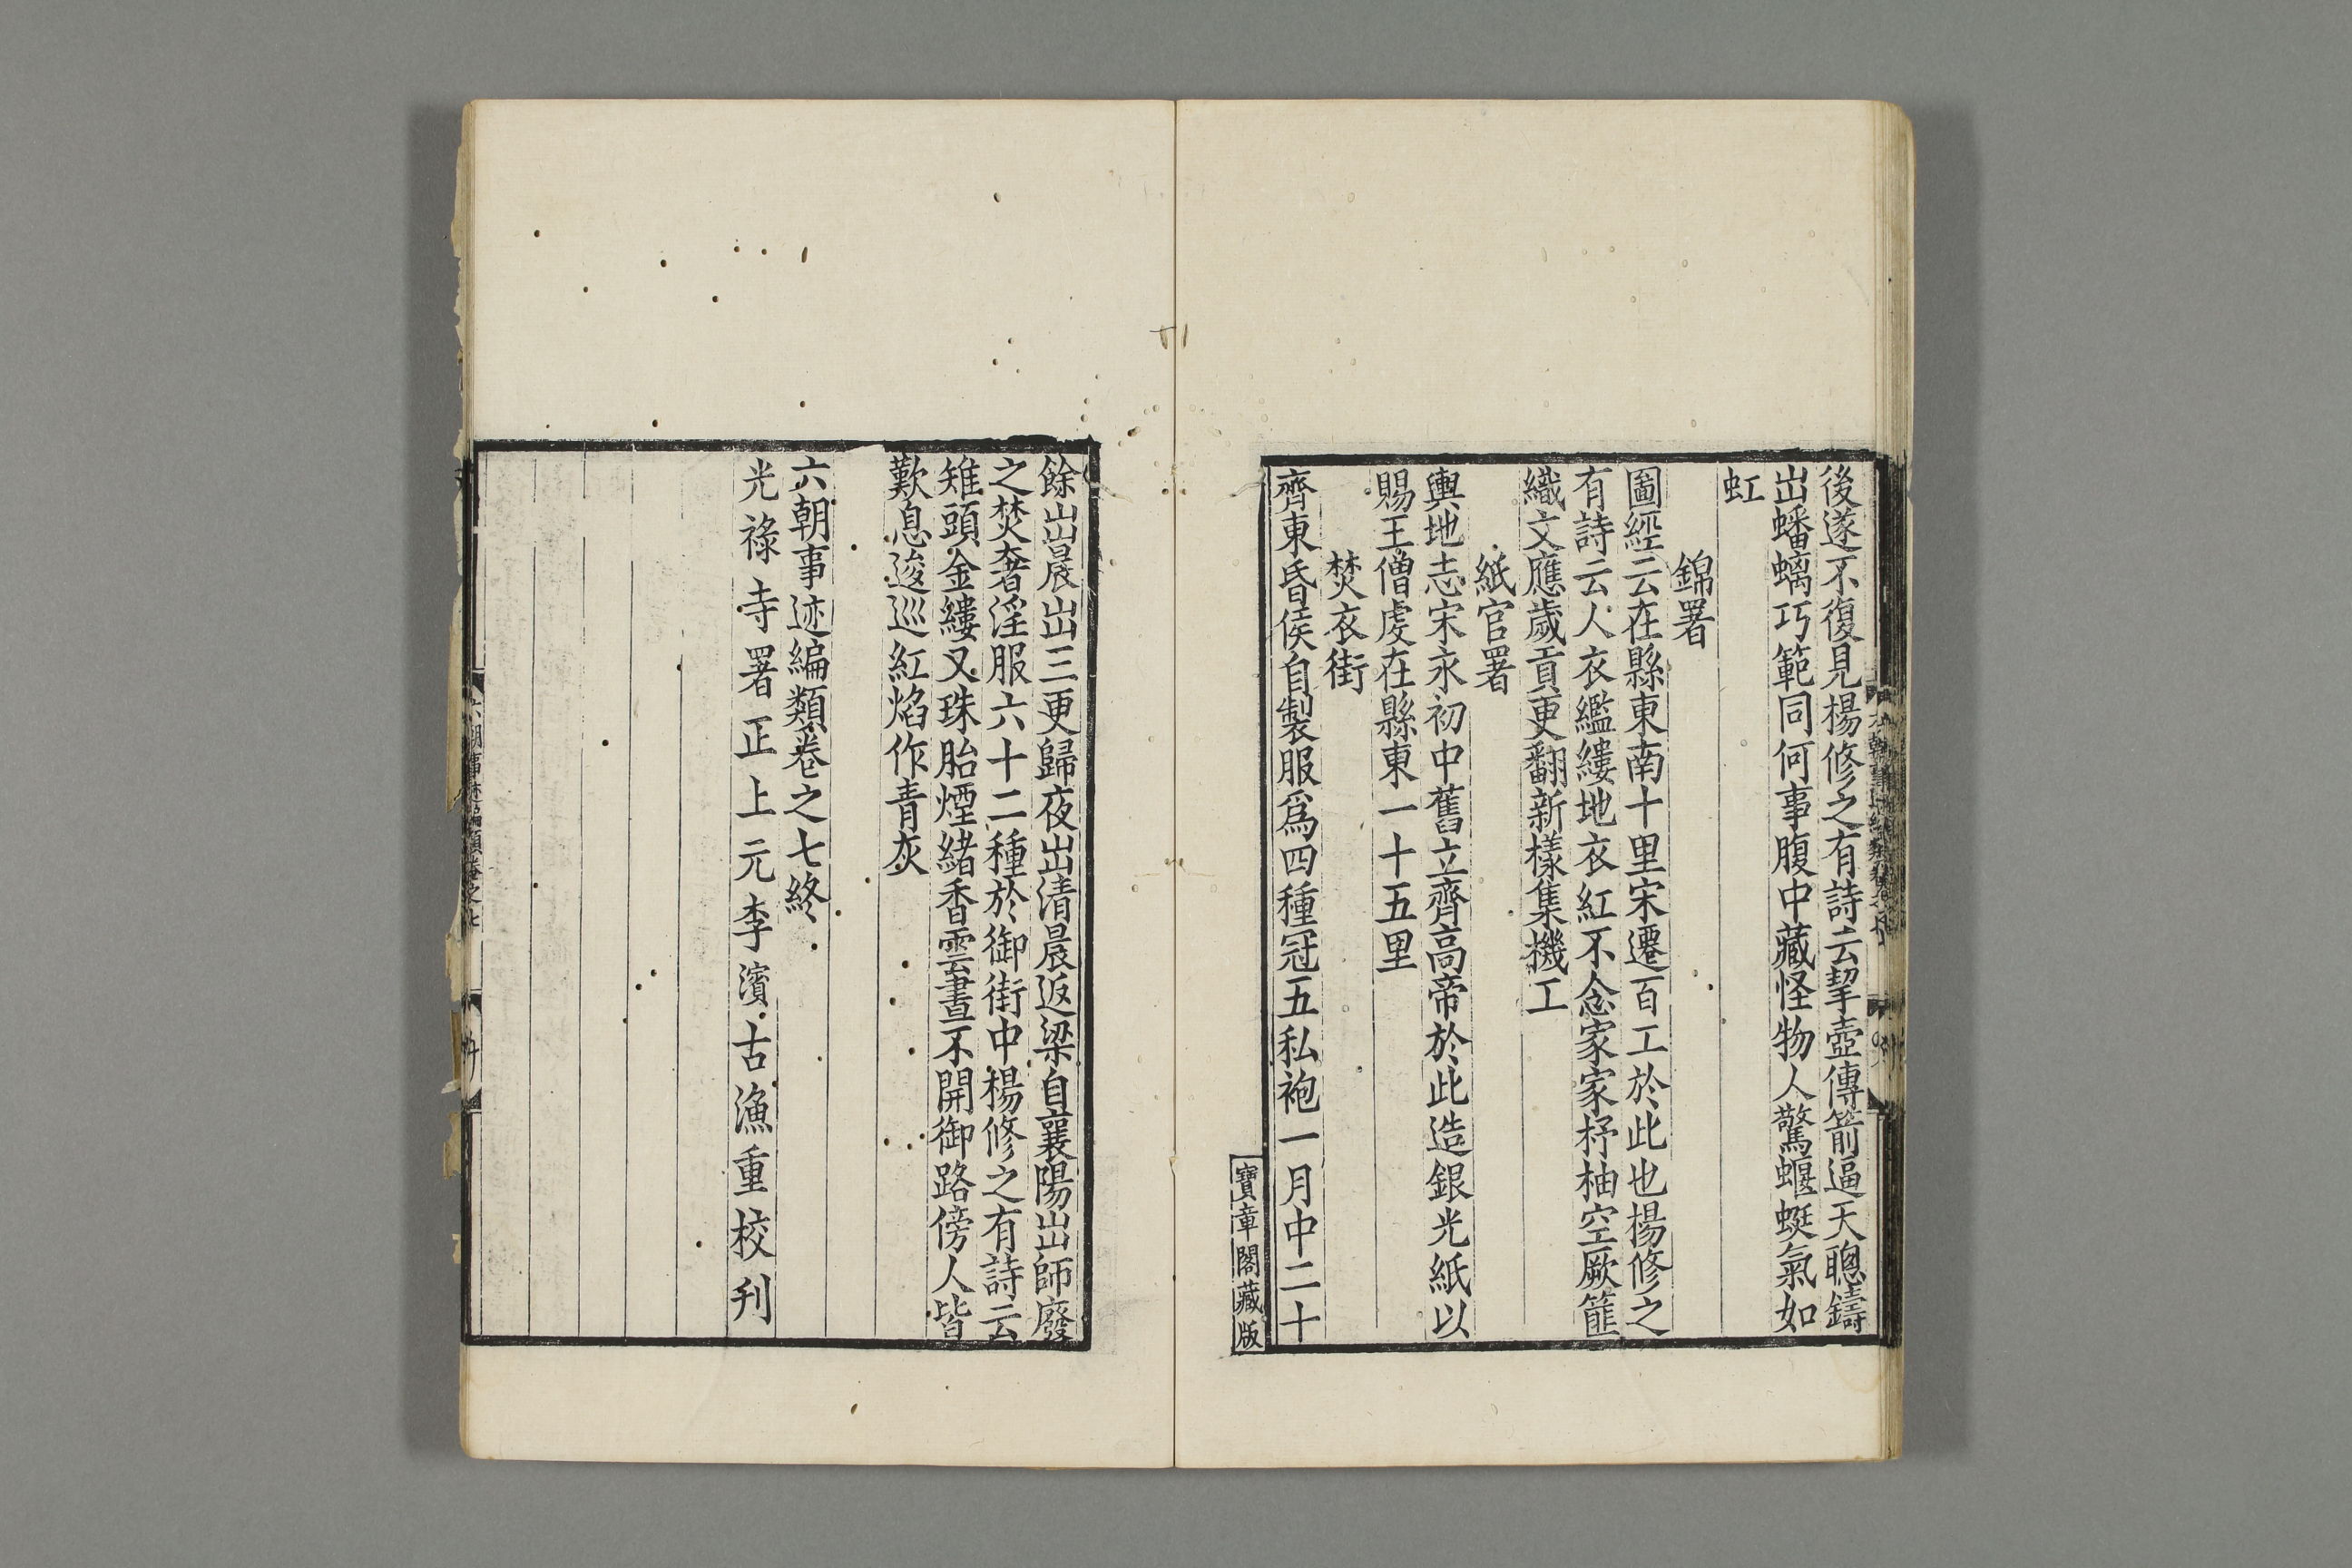 後遂不復見楊修之有詩云挈壺傳箭逼天聰鑄
出蟠螭巧範同何事腹中藏怪物人驚蝘蜓氣如
虹
錦署
圖經云在縣東南十里宋遷百工於此也楊修之
有詩云人衣繿縷地衣紅不念家家杼柚空厥篚
織文應歲貢更翻新樣集機工
紙官署
輿地志宋永初中舊立齊高帝於此造銀光紙以
賜王僧虔在縣東一十五里
焚衣街
齊東昏侯自製服爲四種冠五私袍一月中二十
寶章閣藏版
餘出晨出三更歸夜出清晨返梁自襄陽出師廢
之焚奢淫服六十二種於御街中楊修之有詩云
雉頭金縷又珠胎煙緒香雲晝不開御路傍人皆
歎息逡巡紅焰作青灰
六朝事迹編類卷之七終
光祿寺署正上元李濱古漁重校刋
六朝事迹編類卷之七